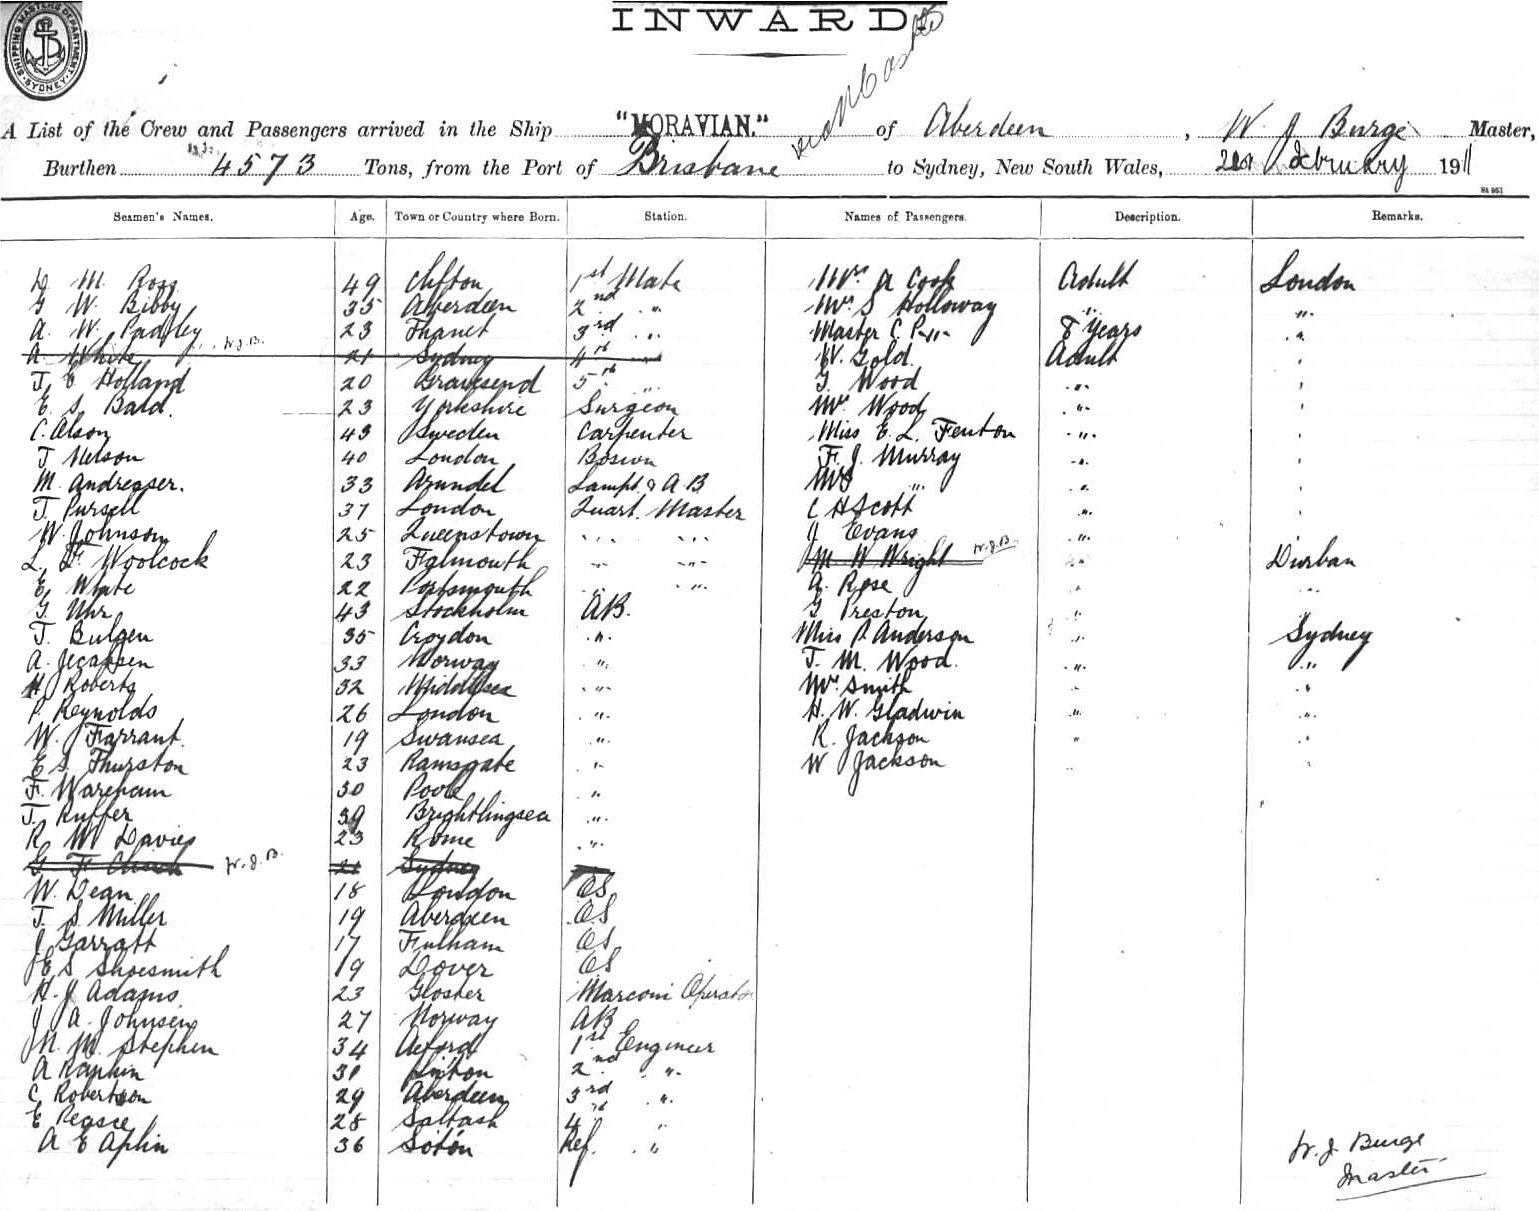 SHIPPING MASTERS DEPARTMENT. SYDNEY
INWARD.
A List of the Crew and Passengers arrived in the Ship "MORAVIAN." of Aberdeen, W J Burge Master,
Burthen 4573 Tons, from the Port of Brisbane to Sydney, New South Wales, 21st February 1911
Seamen's Names. Age. Town or Country where Born. Station. Names of Passengers. Description. Remarks.
D M Ross 49 Clifton 1st Mate Mrs A Cook Adult London
G W. Bibby 35 Aberdeen 2nd " Mrs S Holloway " "
A. W. Padley 23 Thanet 3rd " Master C. 8 Years "
A. White W.J.B. 21 Sydney 4th W. Gold Adult "
J E Holland 20 Gravesend 5th " G Wood " "
E. S. Bald. 23 Yorkshire Surgeon Mrs Wood " "
C. Alson 43 Sweden Carpenter Miss E. L. Fenton " "
J Nelson 40 London Bosun F. J. Murray " "
M. Andreasser. 33 Arundel Lampt & AB Mrs " " "
J. Pursell 37 London Quart. Master C H Scott " "
W. Johnson 25 Queenstown " " J Evans "
L. F. Woolcock 23 Falmouth " " M W Wright W.J.B. " Durban
E. White 22 Portsmouth " " A. Rose " "
G. Uhr 43 Stockholm AB. G Preston "
J. Bulgen 35 Croydon " Miss P. Anderson " Sydney
A. Jecabsen 33 Norway " J. M. Wood. " "
H Roberts 32 Middlesea " Mrs Smith " "
P. Reynolds 26 London " H. W. Gladwin " "
W. J Farrant. 19 Swansea " R. Jackson " "
E S. Thurston 23 Ramsgate " W Jackson " "
F. Wareham 30 Poole "
J. Ruffer 39 Brightlingsea "
R. W Davies 23 Rome "
G F Church W.J.B. 21 Sydney
W. Dean 18 London OS
J. S Miller 19 Aberdeen OS
J Garratt 17 Fulham OS
J E S Shoesmith 19 Dover OS
H. J Adams 23 Gloster Marconi Operator
J A. Johnsen 27 Norway AB
J N. M. Stephen 34 Oxford 1st Engineer
A Rankin 31 2nd "
C Robertson 29 Aberdeen 3rd "
E Pearse 28 Saltash 4th "
A E Aplin 36 Soton Ref. "
W. J. Burge
Master